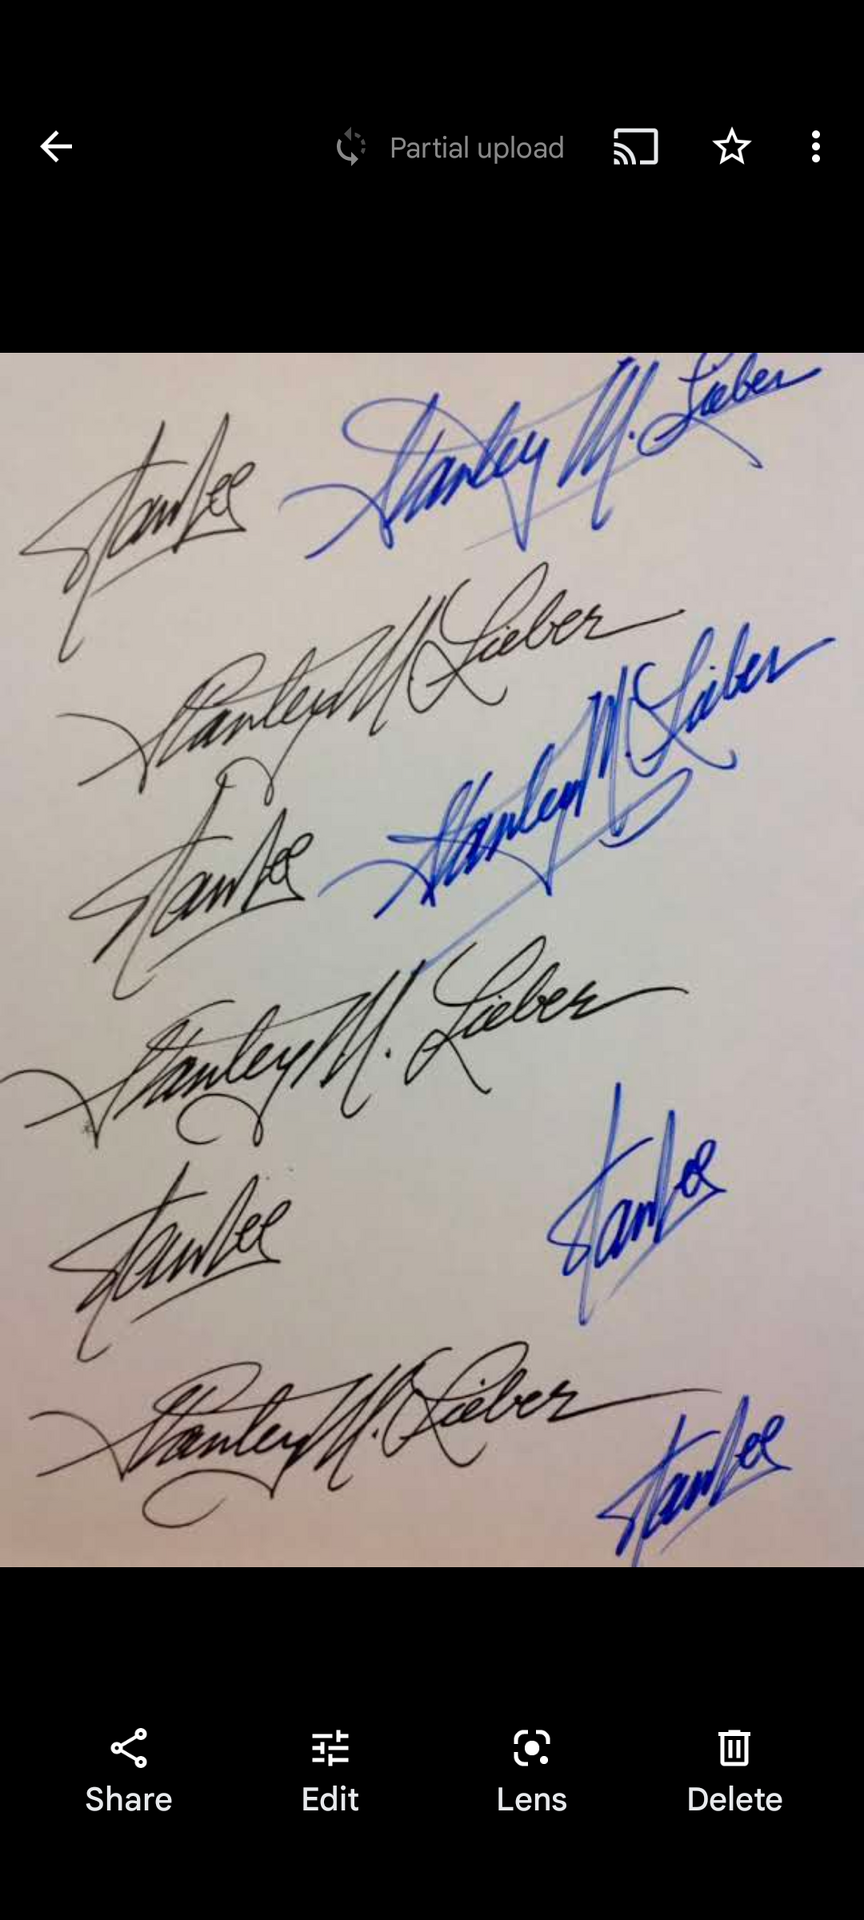 Partial upload
Stan Lee
Stanley M. Lieber
Stanley M Lieber
Stanley M Lieber
Stan Lee
Stanley M. Lieber
Stan Lee
Stan Lee
Stanley M. Lieber
Stan Lee
Share
Edit
Lens
Delete